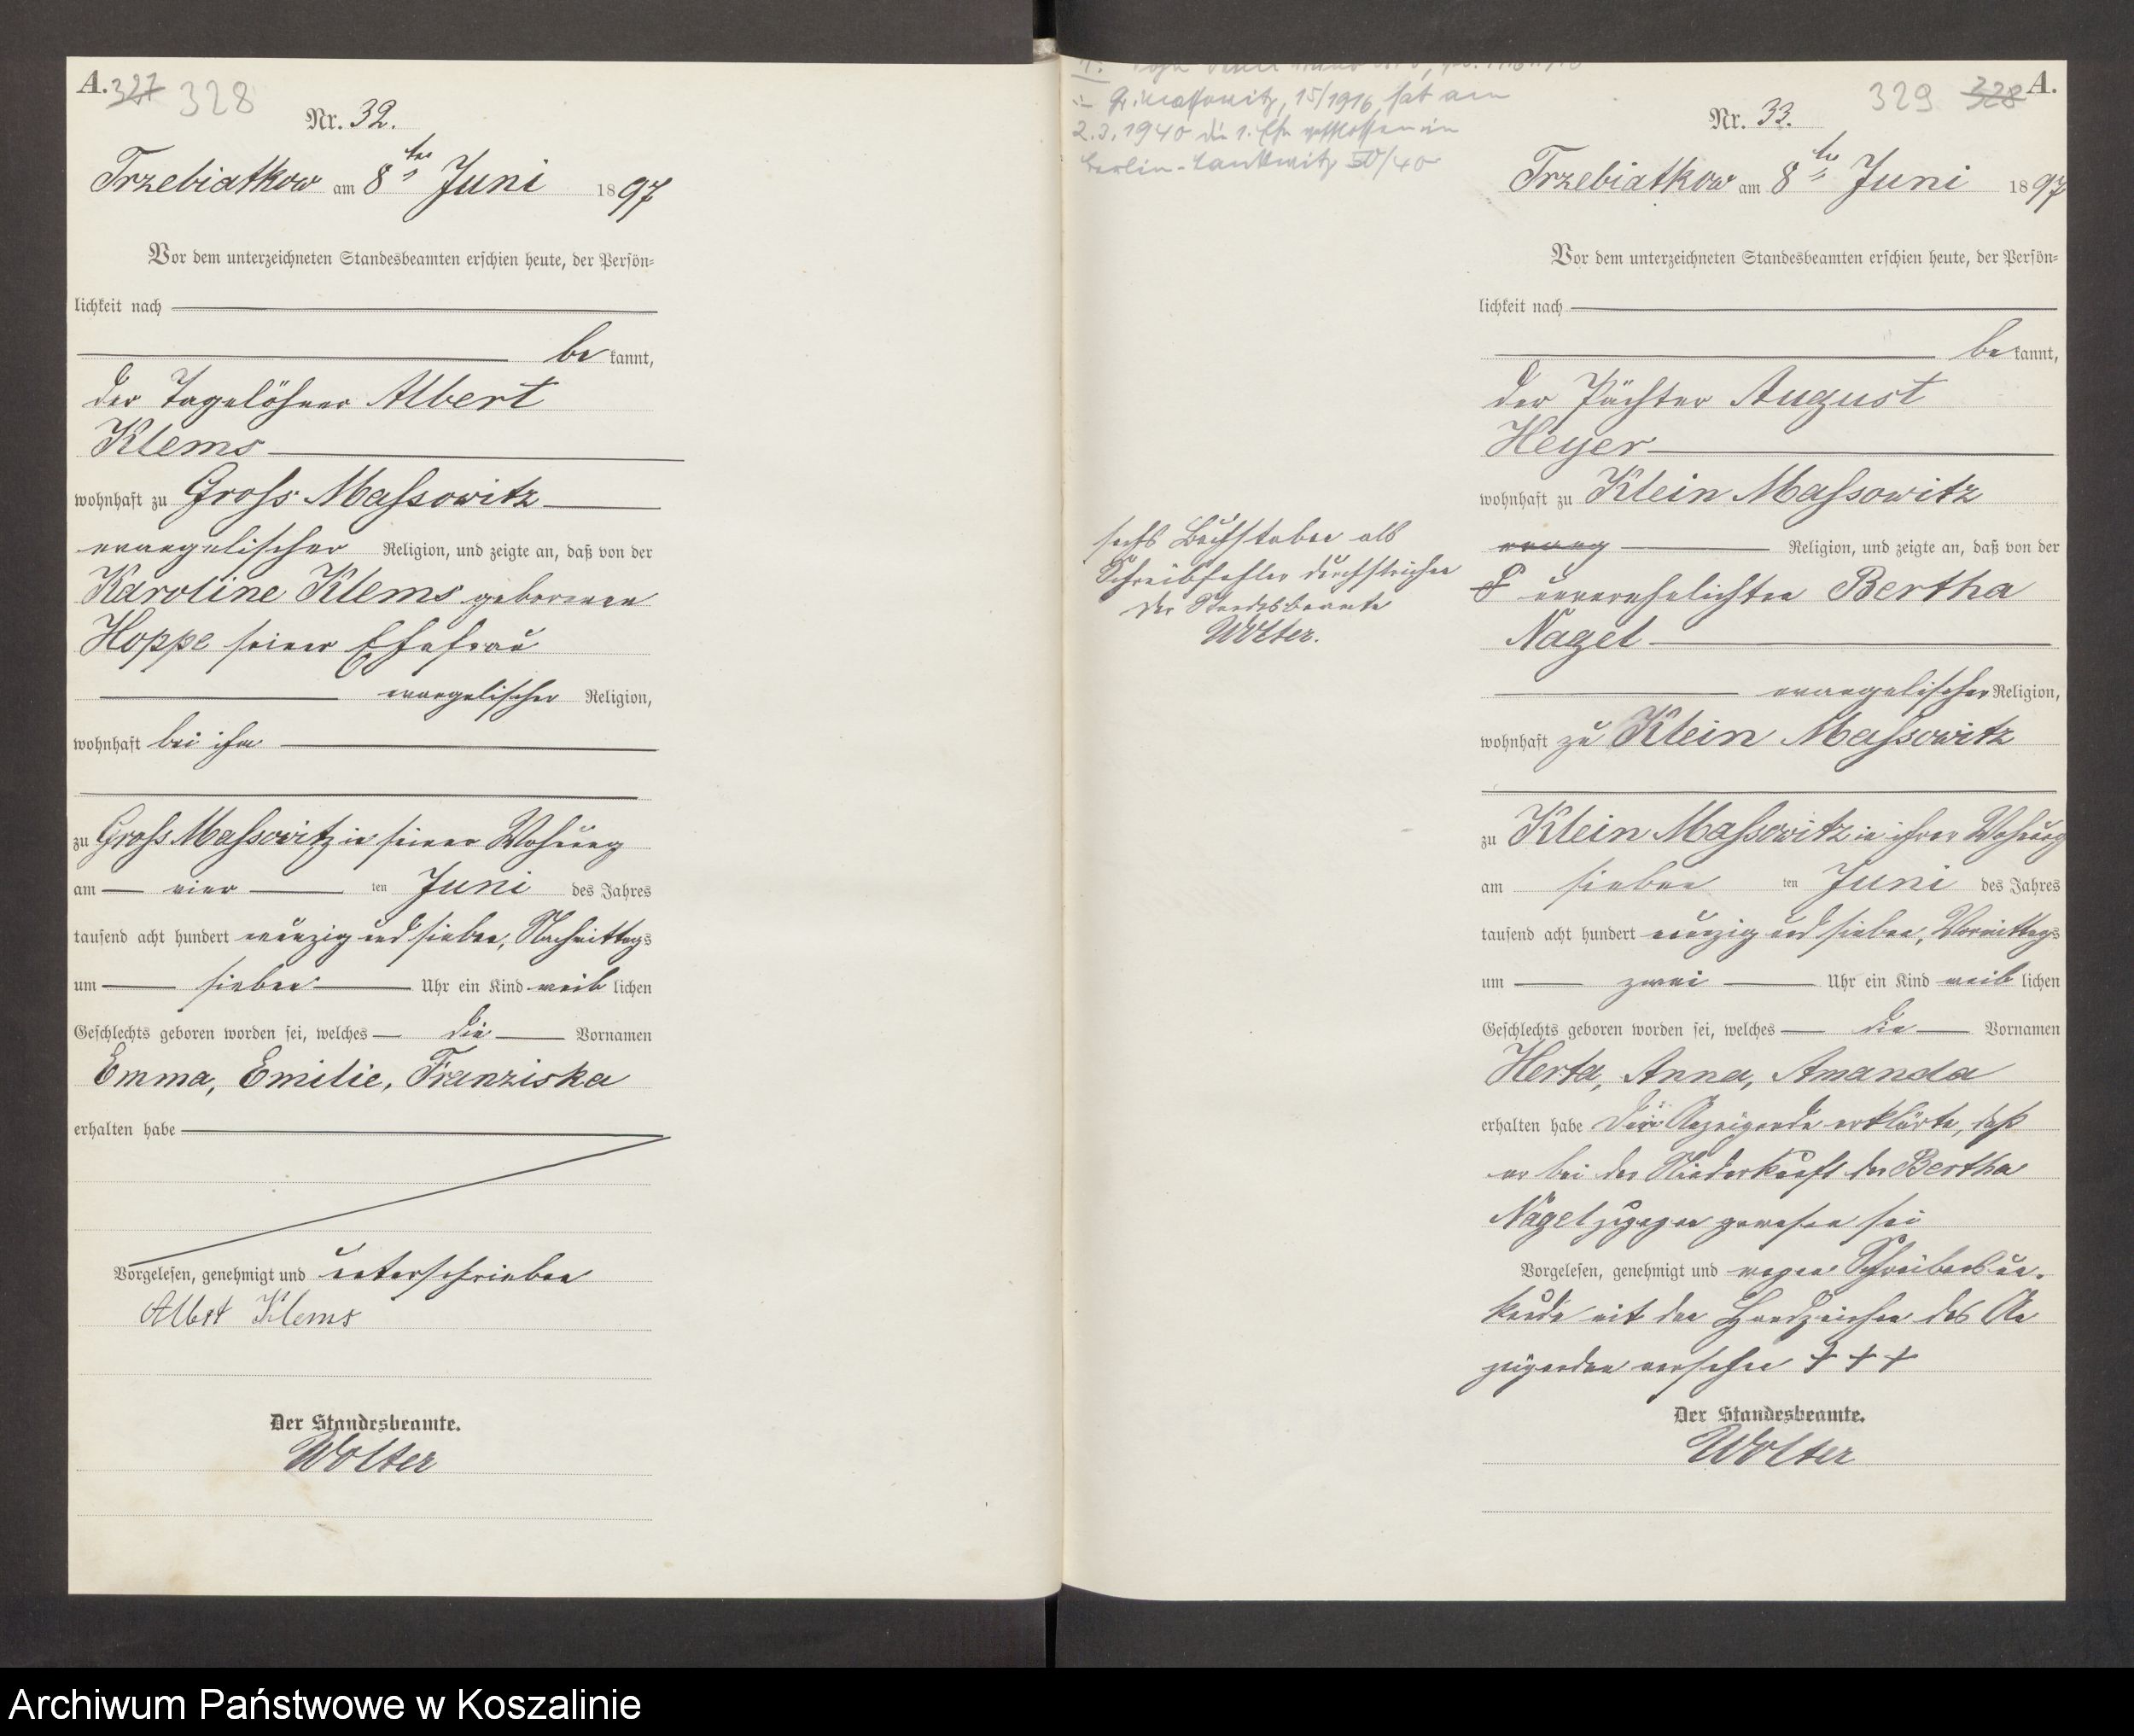 A. 327 328
Nr. 32.
Trzebiatkow am 8ten Juni 1897
Vor dem unterzeichneten Standesbeamten erschien heute, der Persön-
lichkeit nach
bekannt,
der Tagelöhner Albert
Klems
wohnhaft zu Gross Massowitz
evangelischer Religion, und zeigte an, daß von der
Karoline Klems geborenen
Hoppe seiner Ehefrau
evangelischer Religion,
wohnhaft bei ihm
zu Gross Massowitz in seiner Wohnung
am vier ten Juni des Jahres
tausend acht hundert neunzig und sieben, Nachmittags
um sieben Uhr ein Kind weiblichen
Geschlechts geboren worden sei, welches die Vornamen
Emma, Emilie, Franziska
erhalten habe
Vorgelesen, genehmigt und unterschrieben
Albert Klems
Der Standesbeamte.
Wolter
Gr. Massowitz, 15/1916, hat am
2.3.1940 die 1. Ehe geschlossen in
Berlin-Lankwitz 50/40
sechs Buchstaben als
Schreibfehler durchstrichen
Der Standesbeamte
Wolter.
329 328 A.
Nr. 33.
Trzebiatkow am 8ten Juni 1897
Vor dem unterzeichneten Standesbeamten erschien heute, der Persön-
lichkeit nach
bekannt,
der Pächter August
Heyer
wohnhaft zu Klein Massowitz
evang Religion, und zeigte an, daß von der
unverehelichten Bertha
Nagel
evangelischer Religion,
wohnhaft zu Klein Massowitz
zu Klein Massowitz in ihrer Wohnung
am sieben ten Juni des Jahres
tausend acht hundert neunzig und sieben, Vormittags
um zwei Uhr ein Kind weiblichen
Geschlechts geboren worden sei, welches die Vornamen
Herta, Anna, Amanda
erhalten habe Der Anzeigende erklärte, daß
er bei der Niederkunft der Bertha
Nagel zugegen gewesen sei
Vorgelesen, genehmigt und wegen Schreibensun-
kunde mit den Handzeichen des An
zeigenden versehen + + +
Der Standesbeamte.
Wolter
Archiwum Państwowe w Koszalinie